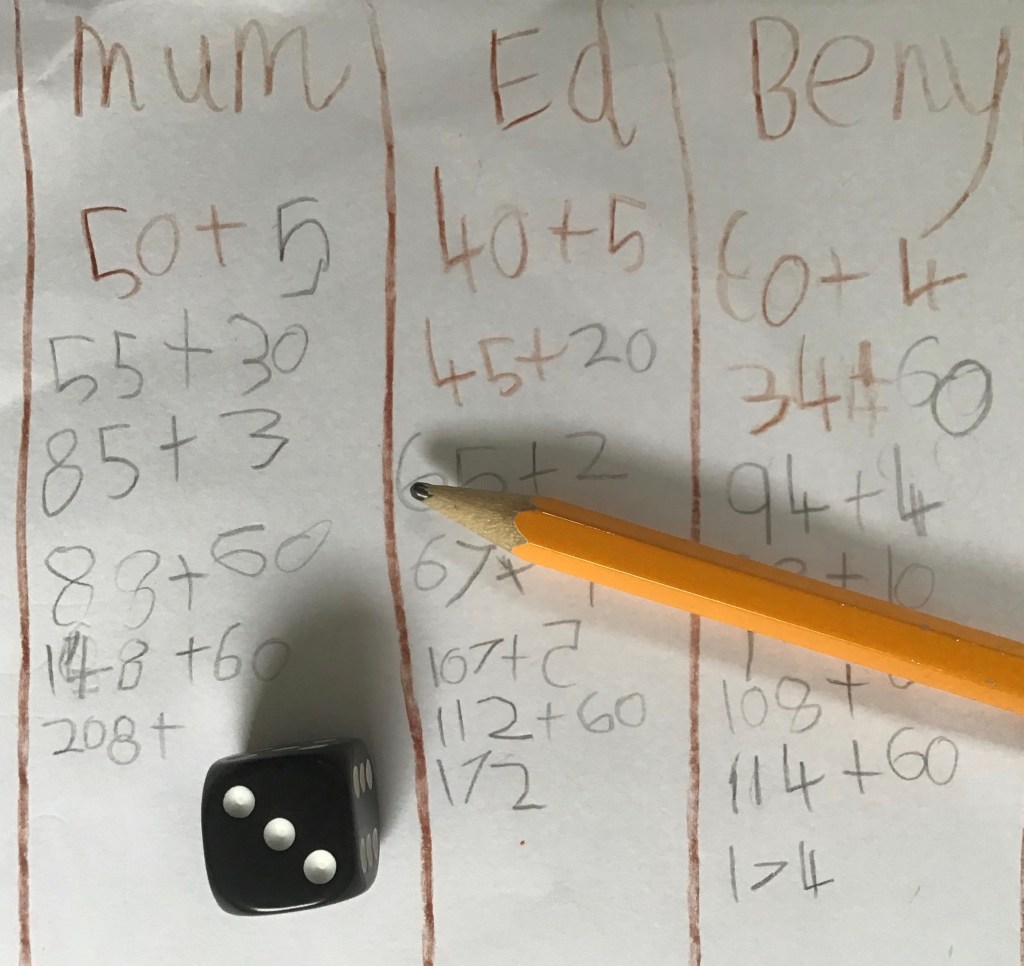 mum
50+5
55+30
85+3
88+60
148+60
208+
Ed
40+5
45+20
65+2
67+
107+5
112+60
172
Beny
60+4
34+60
94+4
+10
108+
114+60
174